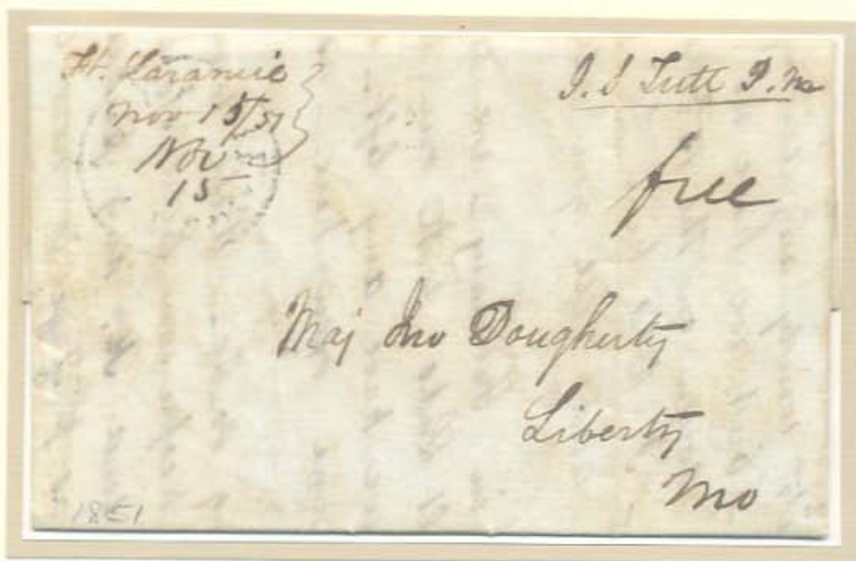 Ft. Laramie
Nov 15/51
Nov
15
J. S Tutt P. M
free
Maj Jno Dougherty
Liberty
Mo
1851